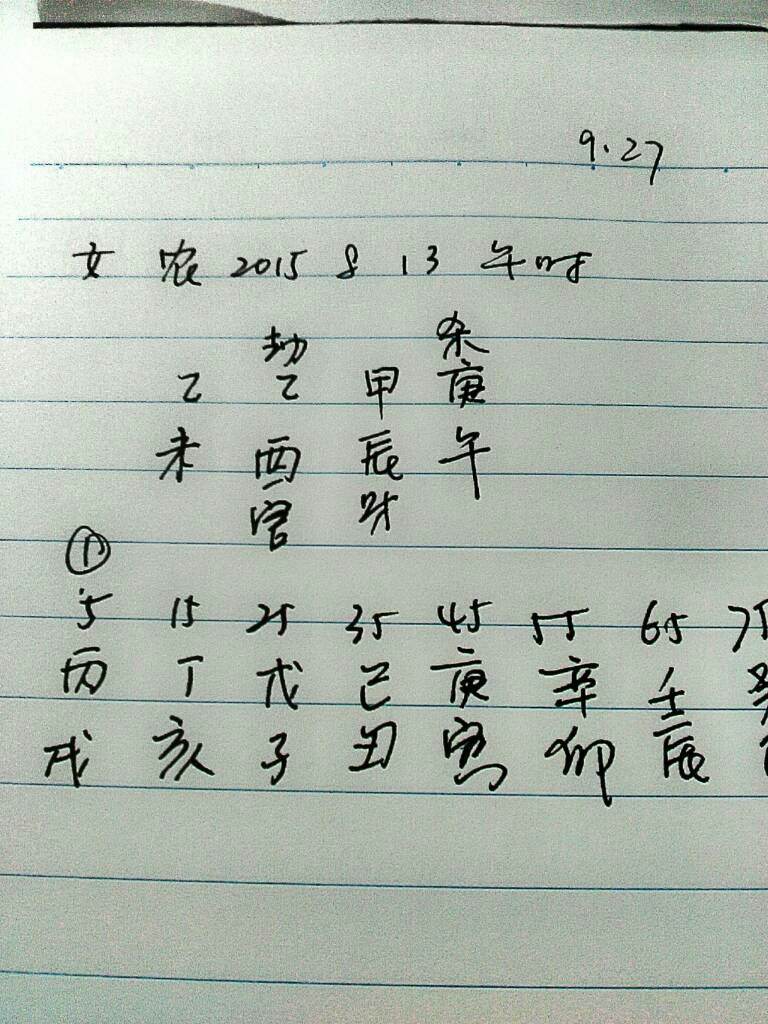 9.27
女 农 2015 8 13 午时
劫 杀
乙 乙 甲 庚
未 酉 辰 午
官 财
①
5 15 25 35 45 55 65 75
丙 丁 戊 己 庚 辛 壬
戌 亥 子 丑 寅 卯 辰